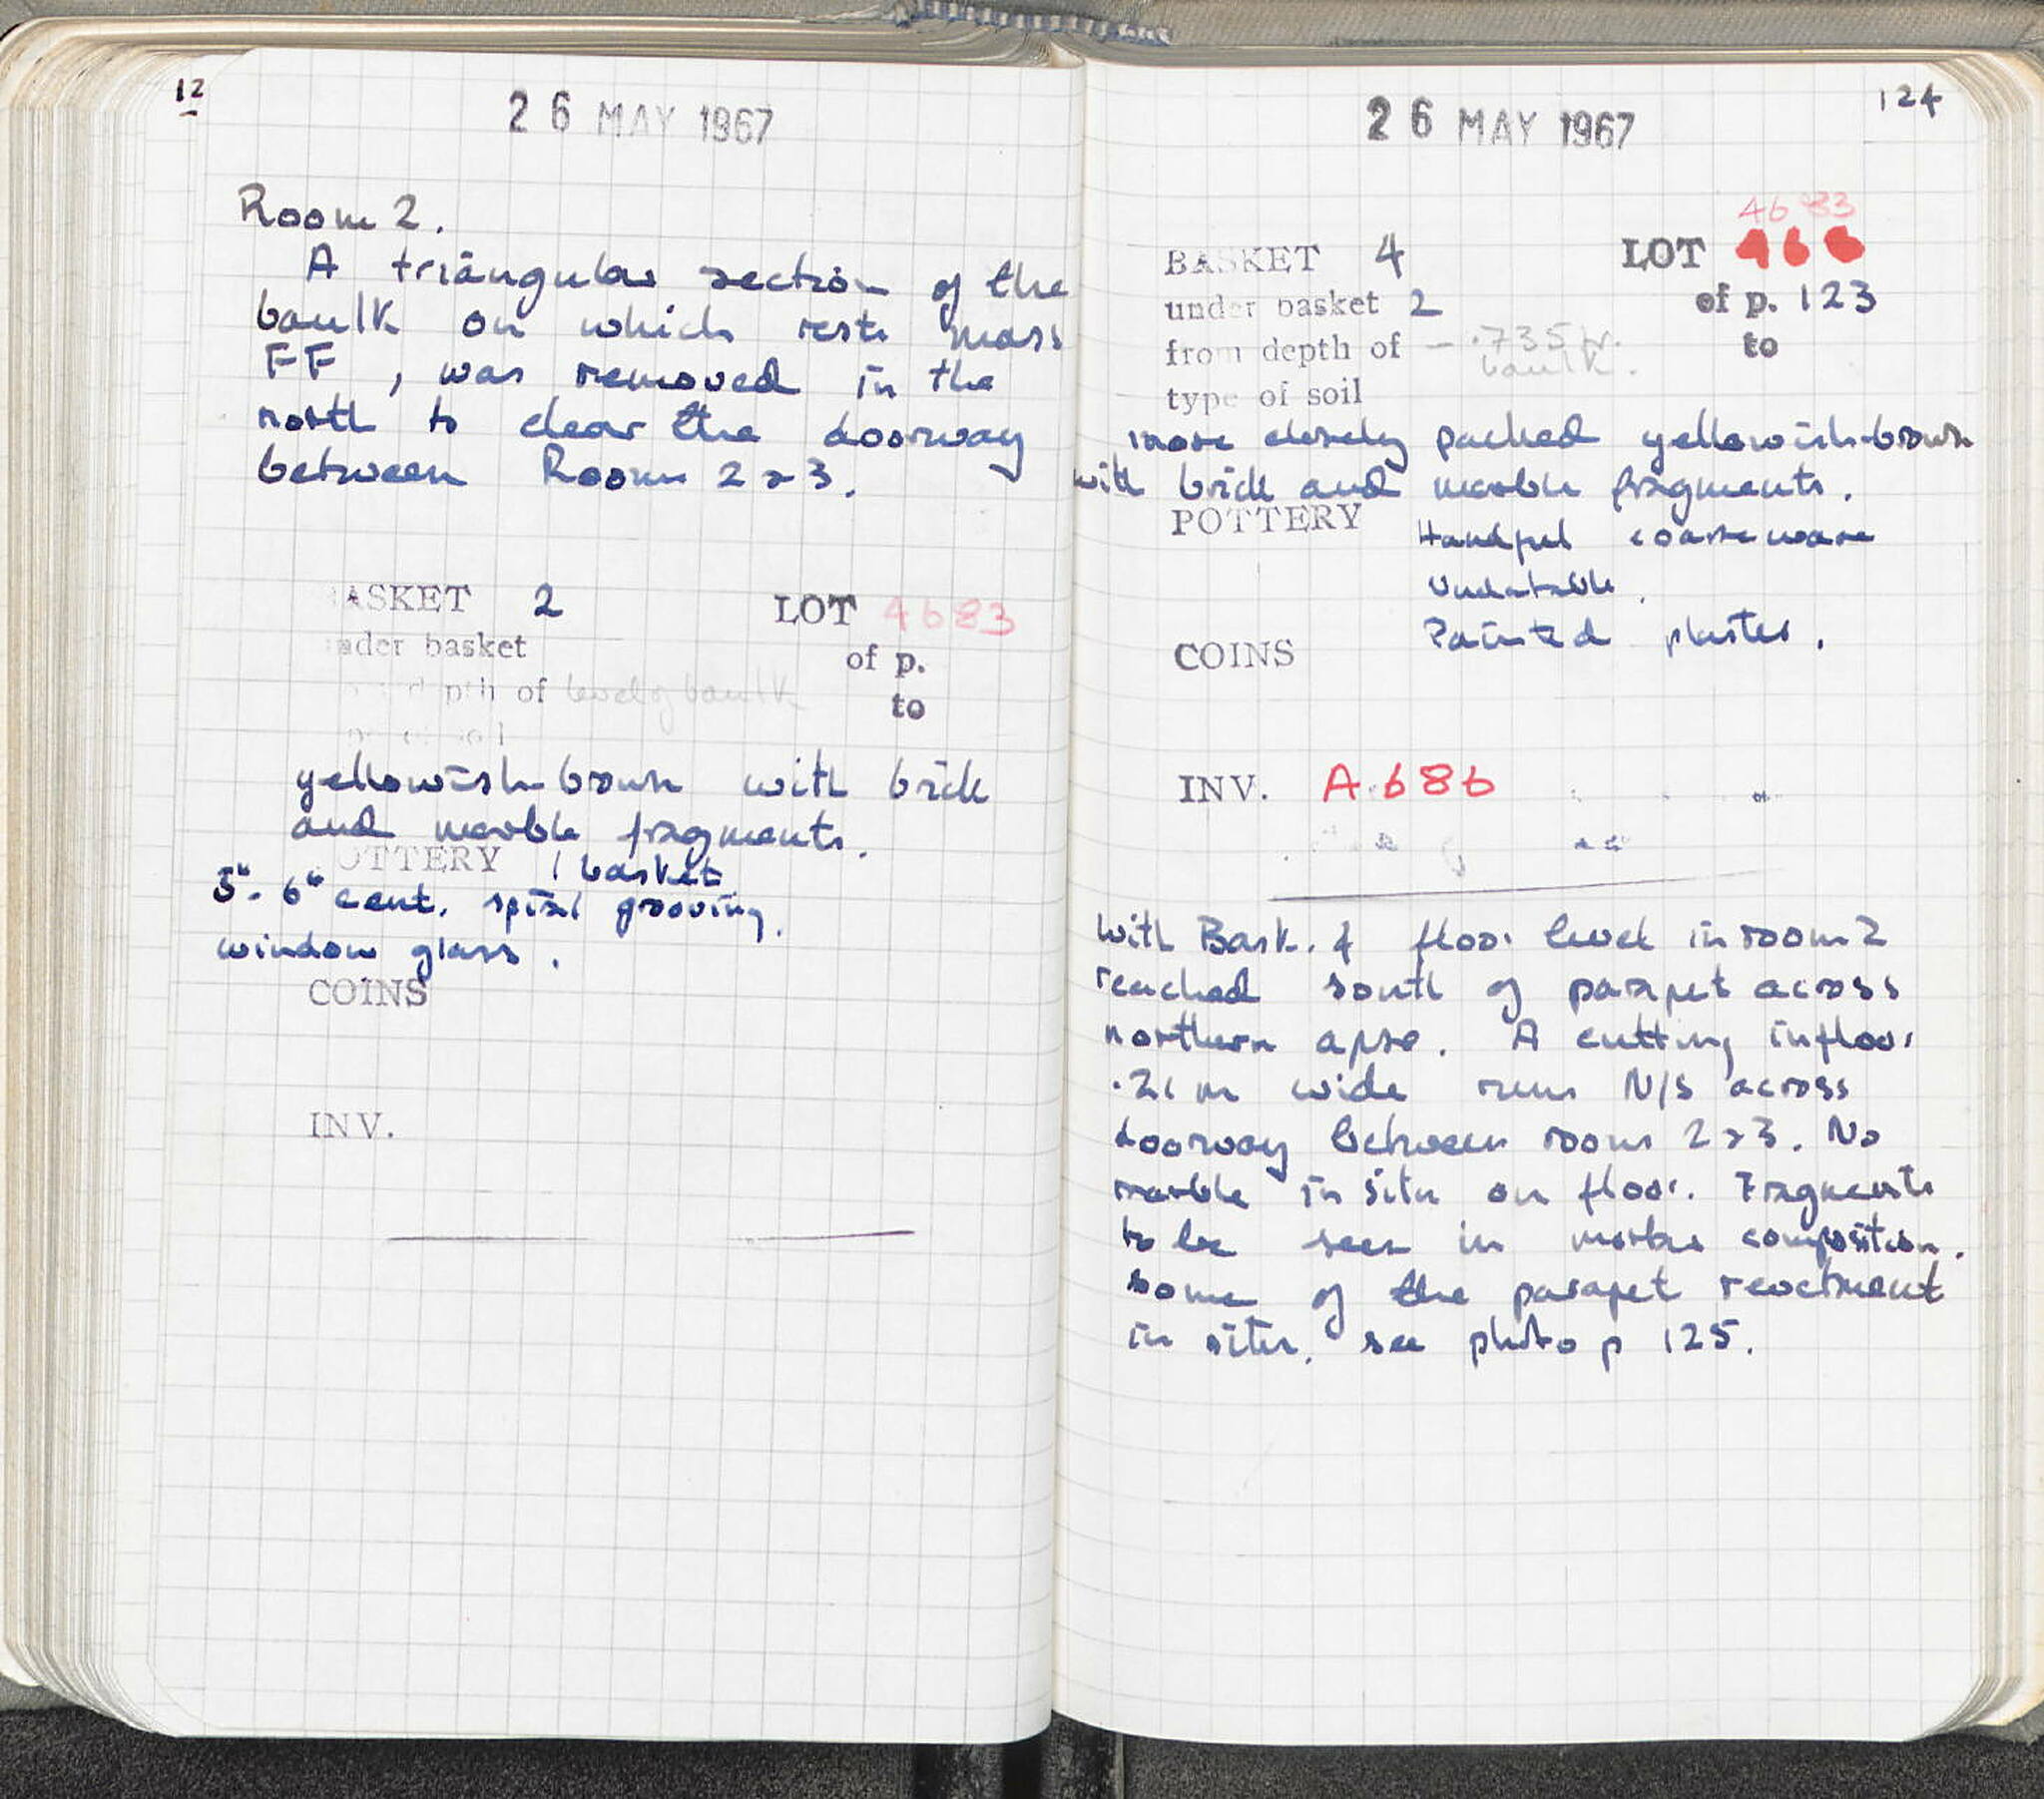 12
26 MAY 1967
Room 2.
A triangular section of the
baulk on which rests mass
FF, was removed in the
north to clear the doorway
between Room 2 & 3.
ASKET 2 LOT 4683
nder basket of p.
pth of level of baulk to
yellowish brown with brick
and marble fragments.
OTTERY 1 basket
5th. 6th cent. spiral grooving.
window glass.
COINS
INV.
124
26 MAY 1967
4683
BASKET 4 LOT
under basket 2 of p. 123
from depth of - .735 fr. to
baulk.
type of soil
more closely packed yellowish-brown
with brick and marble fragments.
POTTERY Handful coarse ware
undatable.
Painted plaster.
COINS
INV. A.686
With Bask. 4 floor level in room 2
reached south of parapet across
northern apse. A cutting in floor
.21 m wide runs N/S across
doorway between rooms 2 & 3. No
marble in situ on floor. Fragments
to be seen in mortar composition.
Some of the parapet revetment
in situ. see photo p 125.